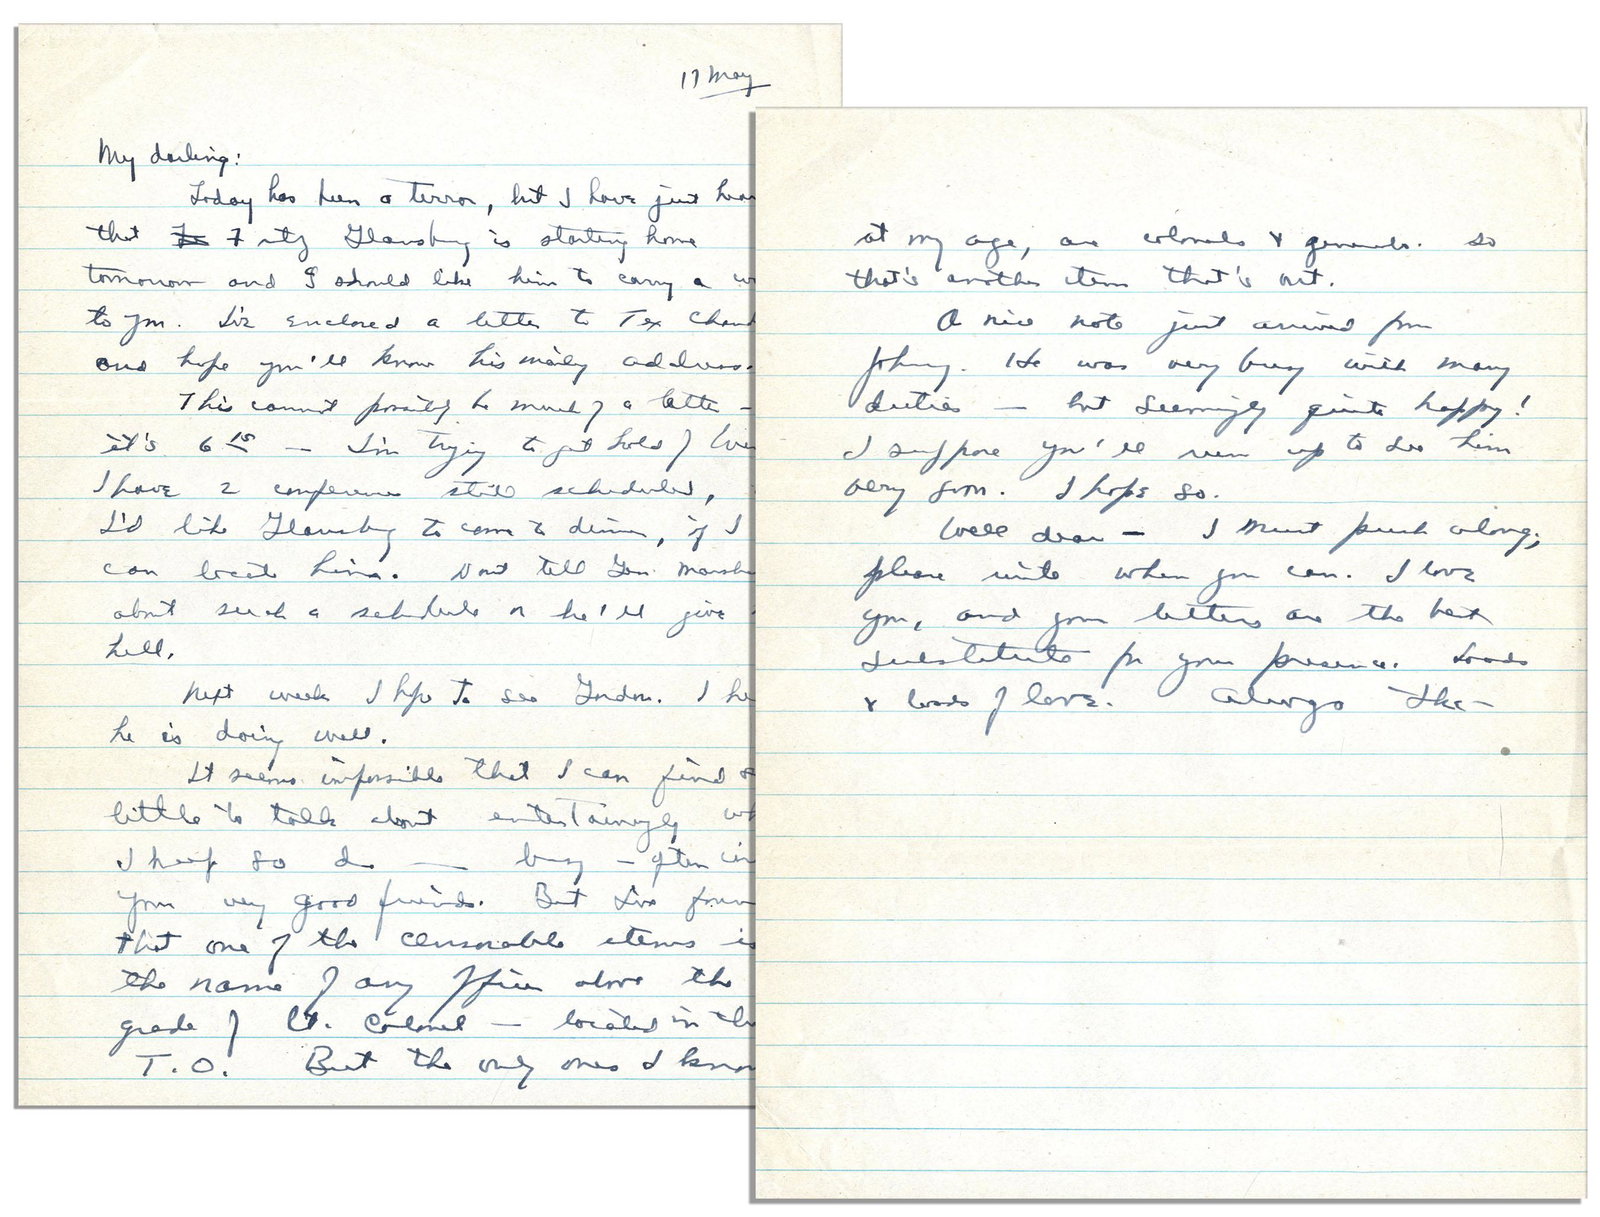 17 May
My darling:
Today has been a terror, but I have just
that Fritz is starting home
tomorrow and I should like him to carry a
to you. I've enclosed a letter to Tex
and hope you'll know his mailing address.
This cannot possibly be much of a letter –
it's 6 15 — I'm trying to get hold of
I have 2 conferences still scheduled,
I'd like to come to dinner, if I
can locate him. Don't tell Gen.
about such a schedule or he'll give
hell.
Next week I hope to see Gordon. I
he is doing well.
It seems impossible that I can find
little to talk about entertainingly
I keep so d— — busy – often
your very good friends. But I've
that one of the censorable items is
the name of any officer above the
grade of Lt. Colonel — located in
T.O. But the only ones I
at my age, are colonels & generals. So
that's another item that's out.
A nice note just arrived from
Johnny. He was very busy with many
duties — but seemingly quite happy!
I suppose you'll run up to see him
very soon. I hope so.
Well dear – I must push along;
please write when you can. I love
you, and your letters are the best
substitute for your presence. Loads
& loads of love. Always Ike–